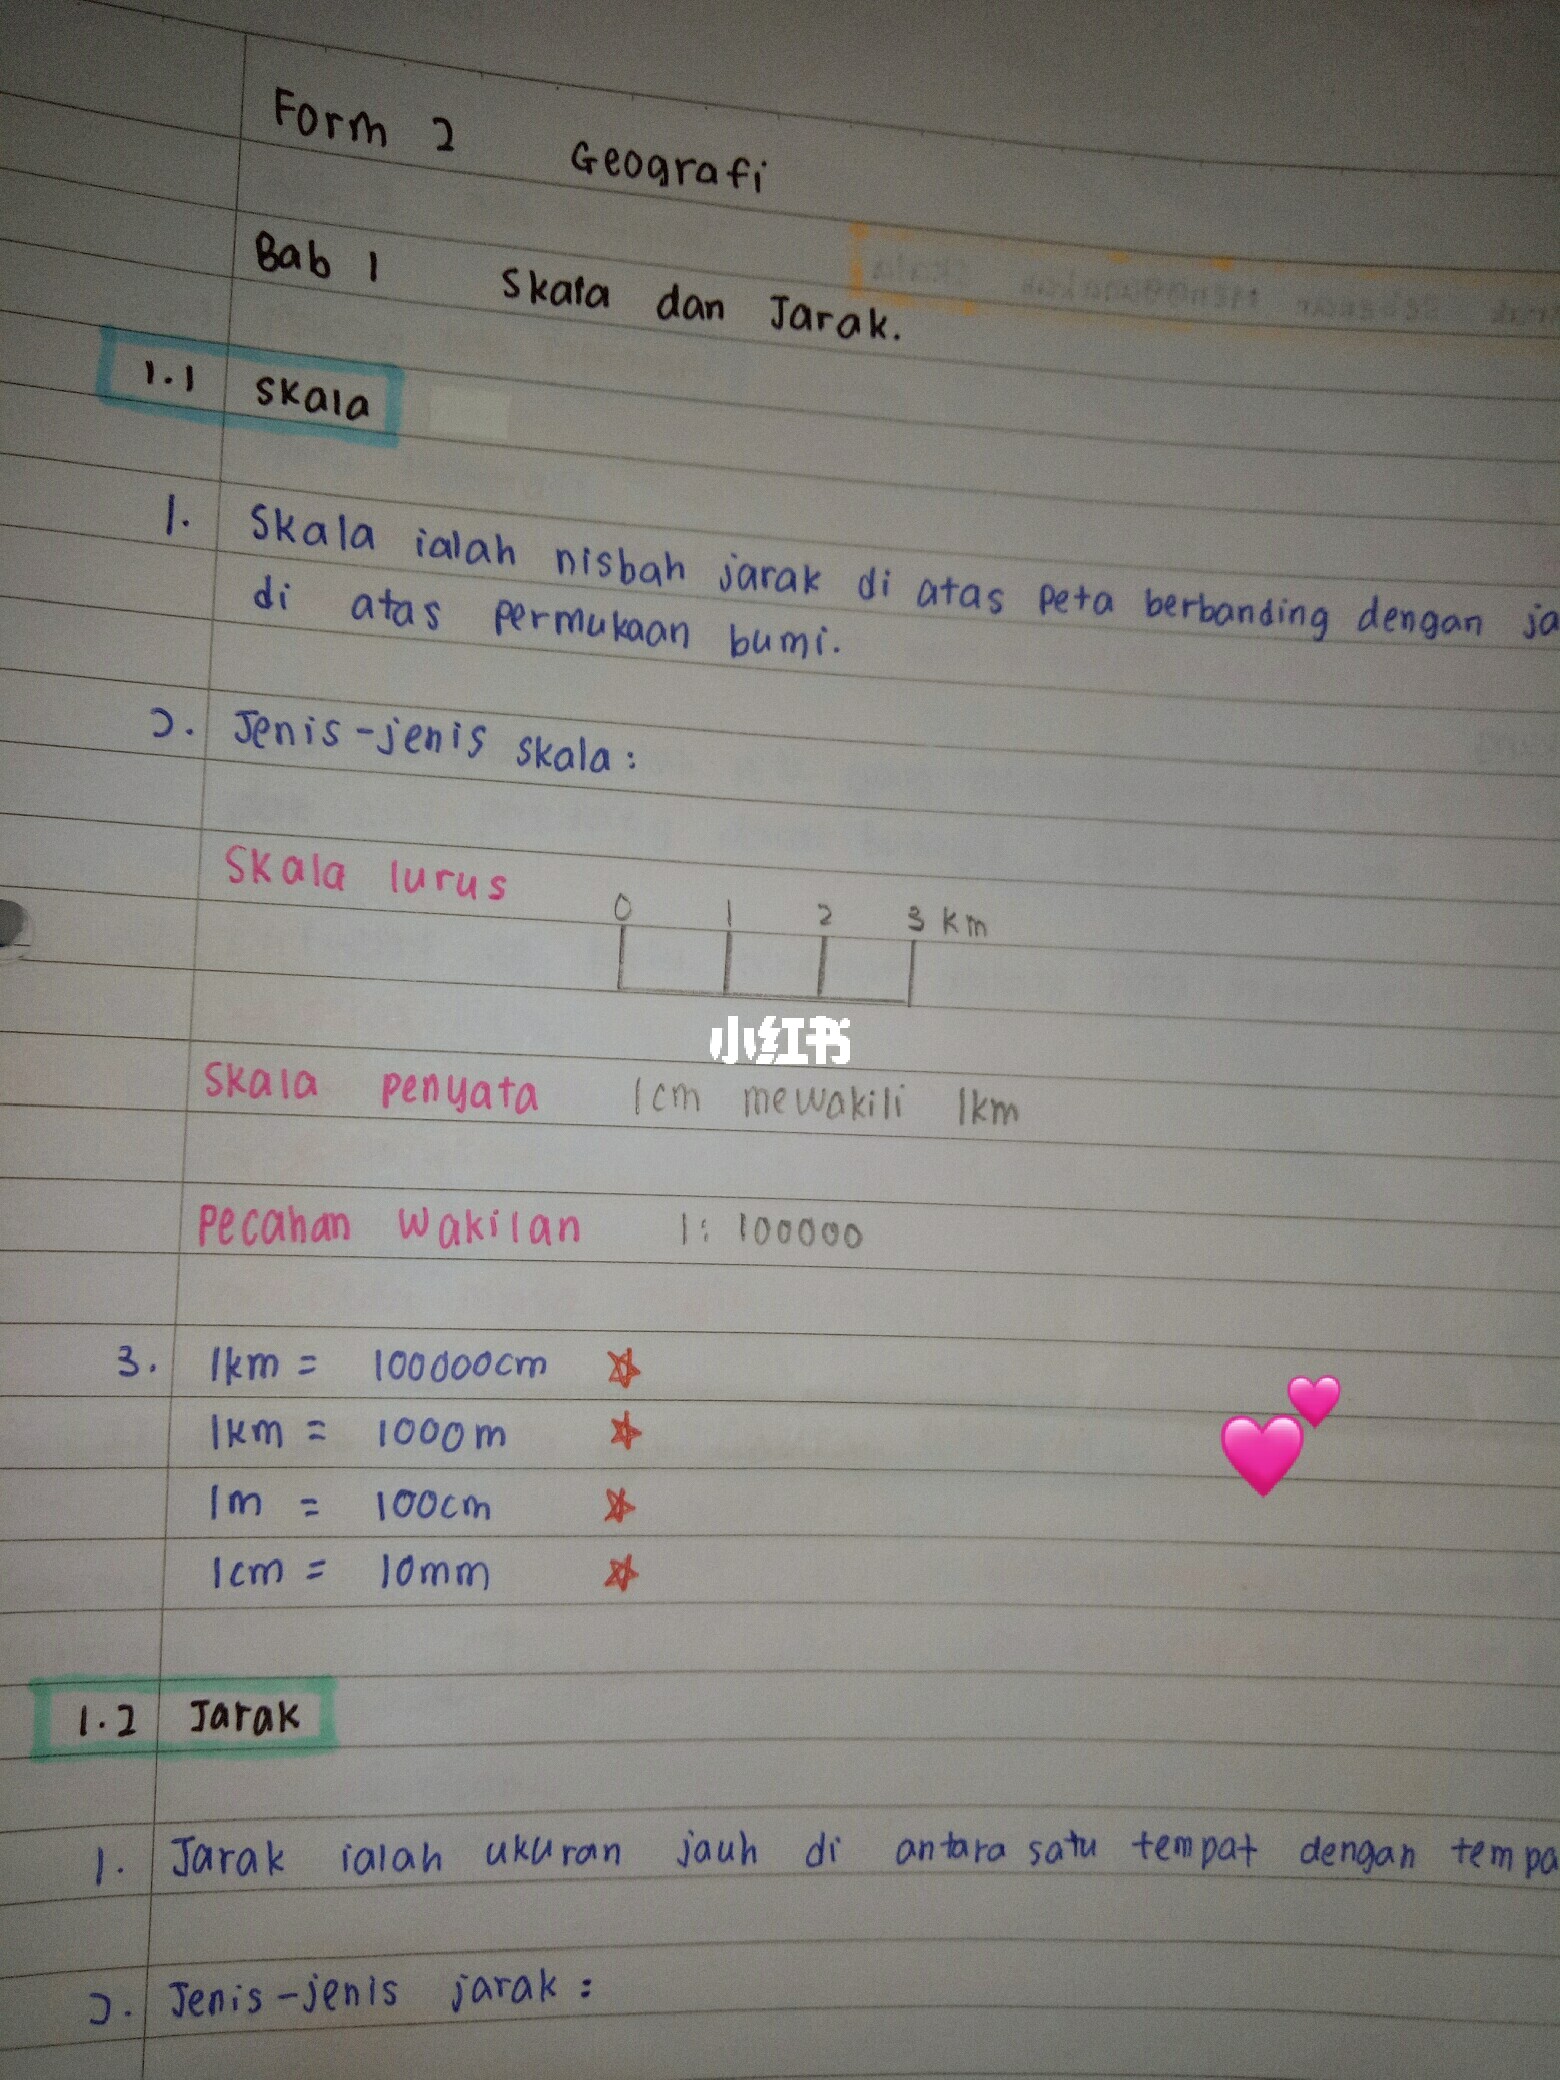 Form 2 Geografi
Bab 1 Skala dan Jarak.
1.1 Skala
1. Skala ialah nisbah jarak di atas peta berbanding dengan
di atas permukaan bumi.
2. Jenis-jenis skala:
Skala lurus
0 1 2 3 km
小红书
Skala penyata 1cm mewakili 1km
Pecahan wakilan 1: 100000
3. 1km = 100000cm
1km = 1000m
1m = 100cm
1cm = 10mm
1.2 Jarak
1. Jarak ialah ukuran jauh di antara satu tempat dengan
2. Jenis-jenis jarak: